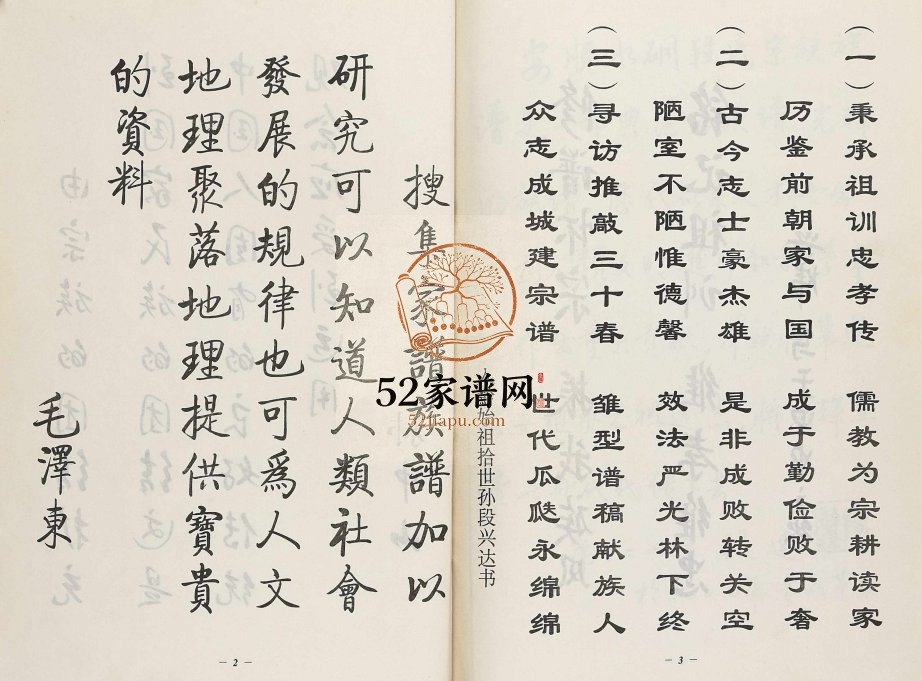 搜集家譜族譜加以
研究可以知道人類社會
發展的規律也可爲人文
地理聚落地理提供寶貴
的資料
毛澤東
－2－
（一）秉承祖训忠孝传 儒教为宗耕读家
历鉴前朝家与国 成于勤俭败于奢
（二）古今志士豪杰雄 是非成败转关空
陋室不陋惟德馨 效法严光林下终
（三）寻访推敲三十春 雏型谱稿献族人
众志成城建宗谱 世代瓜瓞永绵绵
始祖拾世孙段兴达书
－3－
52家谱网
52jiapu.com